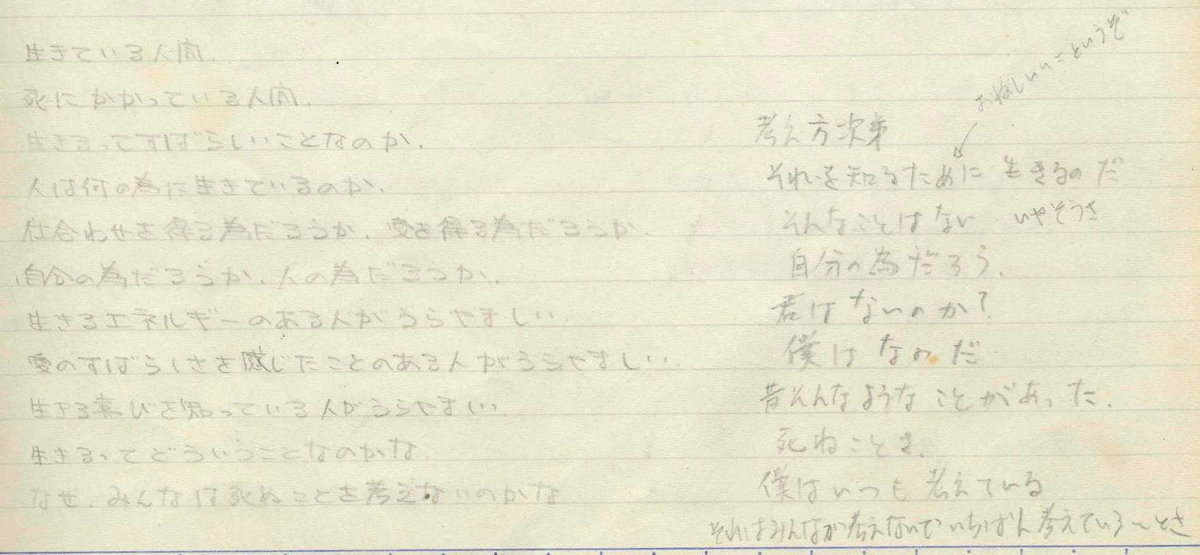 生きている人間.
死にかかっている人間.
生きるってすばらしいことなのか.
人は何の為に生きているのか.
仕合わせを得る為だろうか. 愛を得る為だろうか.
自分の為だろうか. 人の為だろうか.
生きるエネルギーのある人がうらやましい.
愛のすばらしさを感じたことのある人がうらやましい.
生きる喜びを知っている人がうらやましい.
生きるってどういうことなのかな.
なぜ. みんなは死ぬことを考えないのかな
いいこというぞ
考え方次第
それを知るために生きるのだ
そんなことはない いやそうさ
自分の為だろう.
君はないのか?
僕はなめだ
昔そんなようなことがあった.
死ぬことさ.
僕はいつも考えている
それはみんなが考えないでいちばん考えている